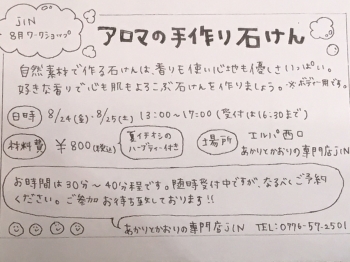 jIN
8月ワークショップ
アロマの手作り石けん
自然素材で作る石けんは、香りも使い心地も優しさいっぱい。
好きな香りで心も肌もよろこぶ石けんを作りましょう。※ボディー用です。
日時 8/24(金)・8/25(土) 13:00〜17:00 (受付は16:30まで)
材料費 ¥800(税込) 夏イチオシの ハーブティー付き
場所 エルパ西口
あかりとかおりの専門店jIN
お時間は30分〜40分程です。随時受付中ですが、なるべくご予約
ください。ご参加お待ち致しております!!
あかりとかおりの専門店jIN TEL:0776-57-2501